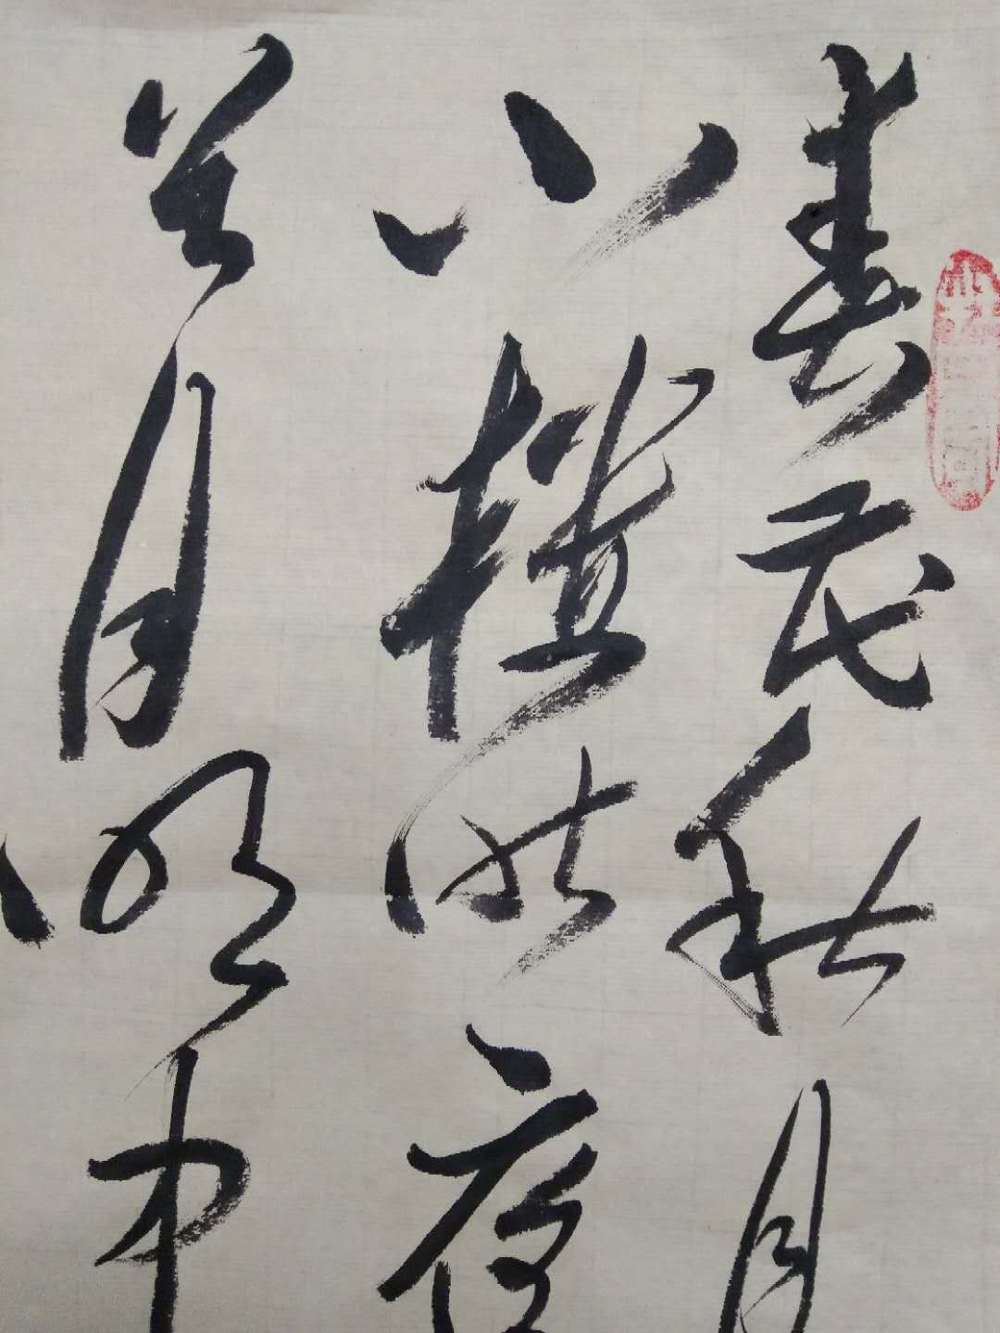 春花秋月
小楼昨夜
首月明中